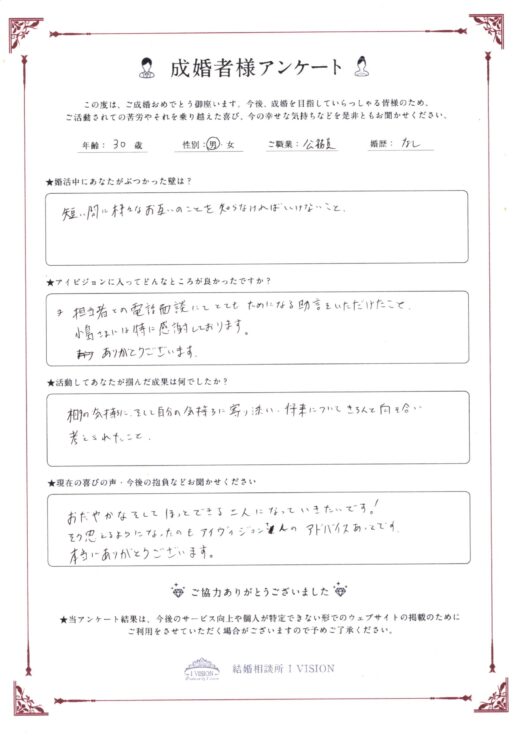 成婚者様アンケート
この度は、ご成婚おめでとう御座います。今後、成婚を目指していらっしゃる皆様のため、
ご活動されての苦労やそれを乗り越えた喜び、今の幸せな気持ちなどを是非ともお聞かせください。
年齢： 30 歳 性別：男・女 ご職業：公務員 婚歴：なし
★婚活中にあなたがぶつかった壁は？
短い間に様々なお互いのことを知らなければいけないこと。
★アイビジョンに入ってどんなところが良かったですか？
担当者との電話面談にてとてもためになる助言をいただけたこと。
小島さんには特に感謝しております。
ありがとうございます。
★活動してあなたが掴んだ成果は何でしたか？
相手の気持ちに、そして自分の気持ちに寄り添い、将来についてきちんと向き合い
考えられたこと。
★現在の喜びの声・今後の抱負などお聞かせください
おだやかなそしてほっとできる二人になっていきたいです！
そう思えるようになったのもアイヴィジョンさんのアドバイスあってです。
本当にありがとうございます。
ご協力ありがとうございました
★当アンケート結果は、今後のサービス向上や個人が特定できない形でのウェブサイトの掲載のために
ご利用をさせていただく場合がございますので予めご了承ください。
I VISION
結婚相談所 I VISION